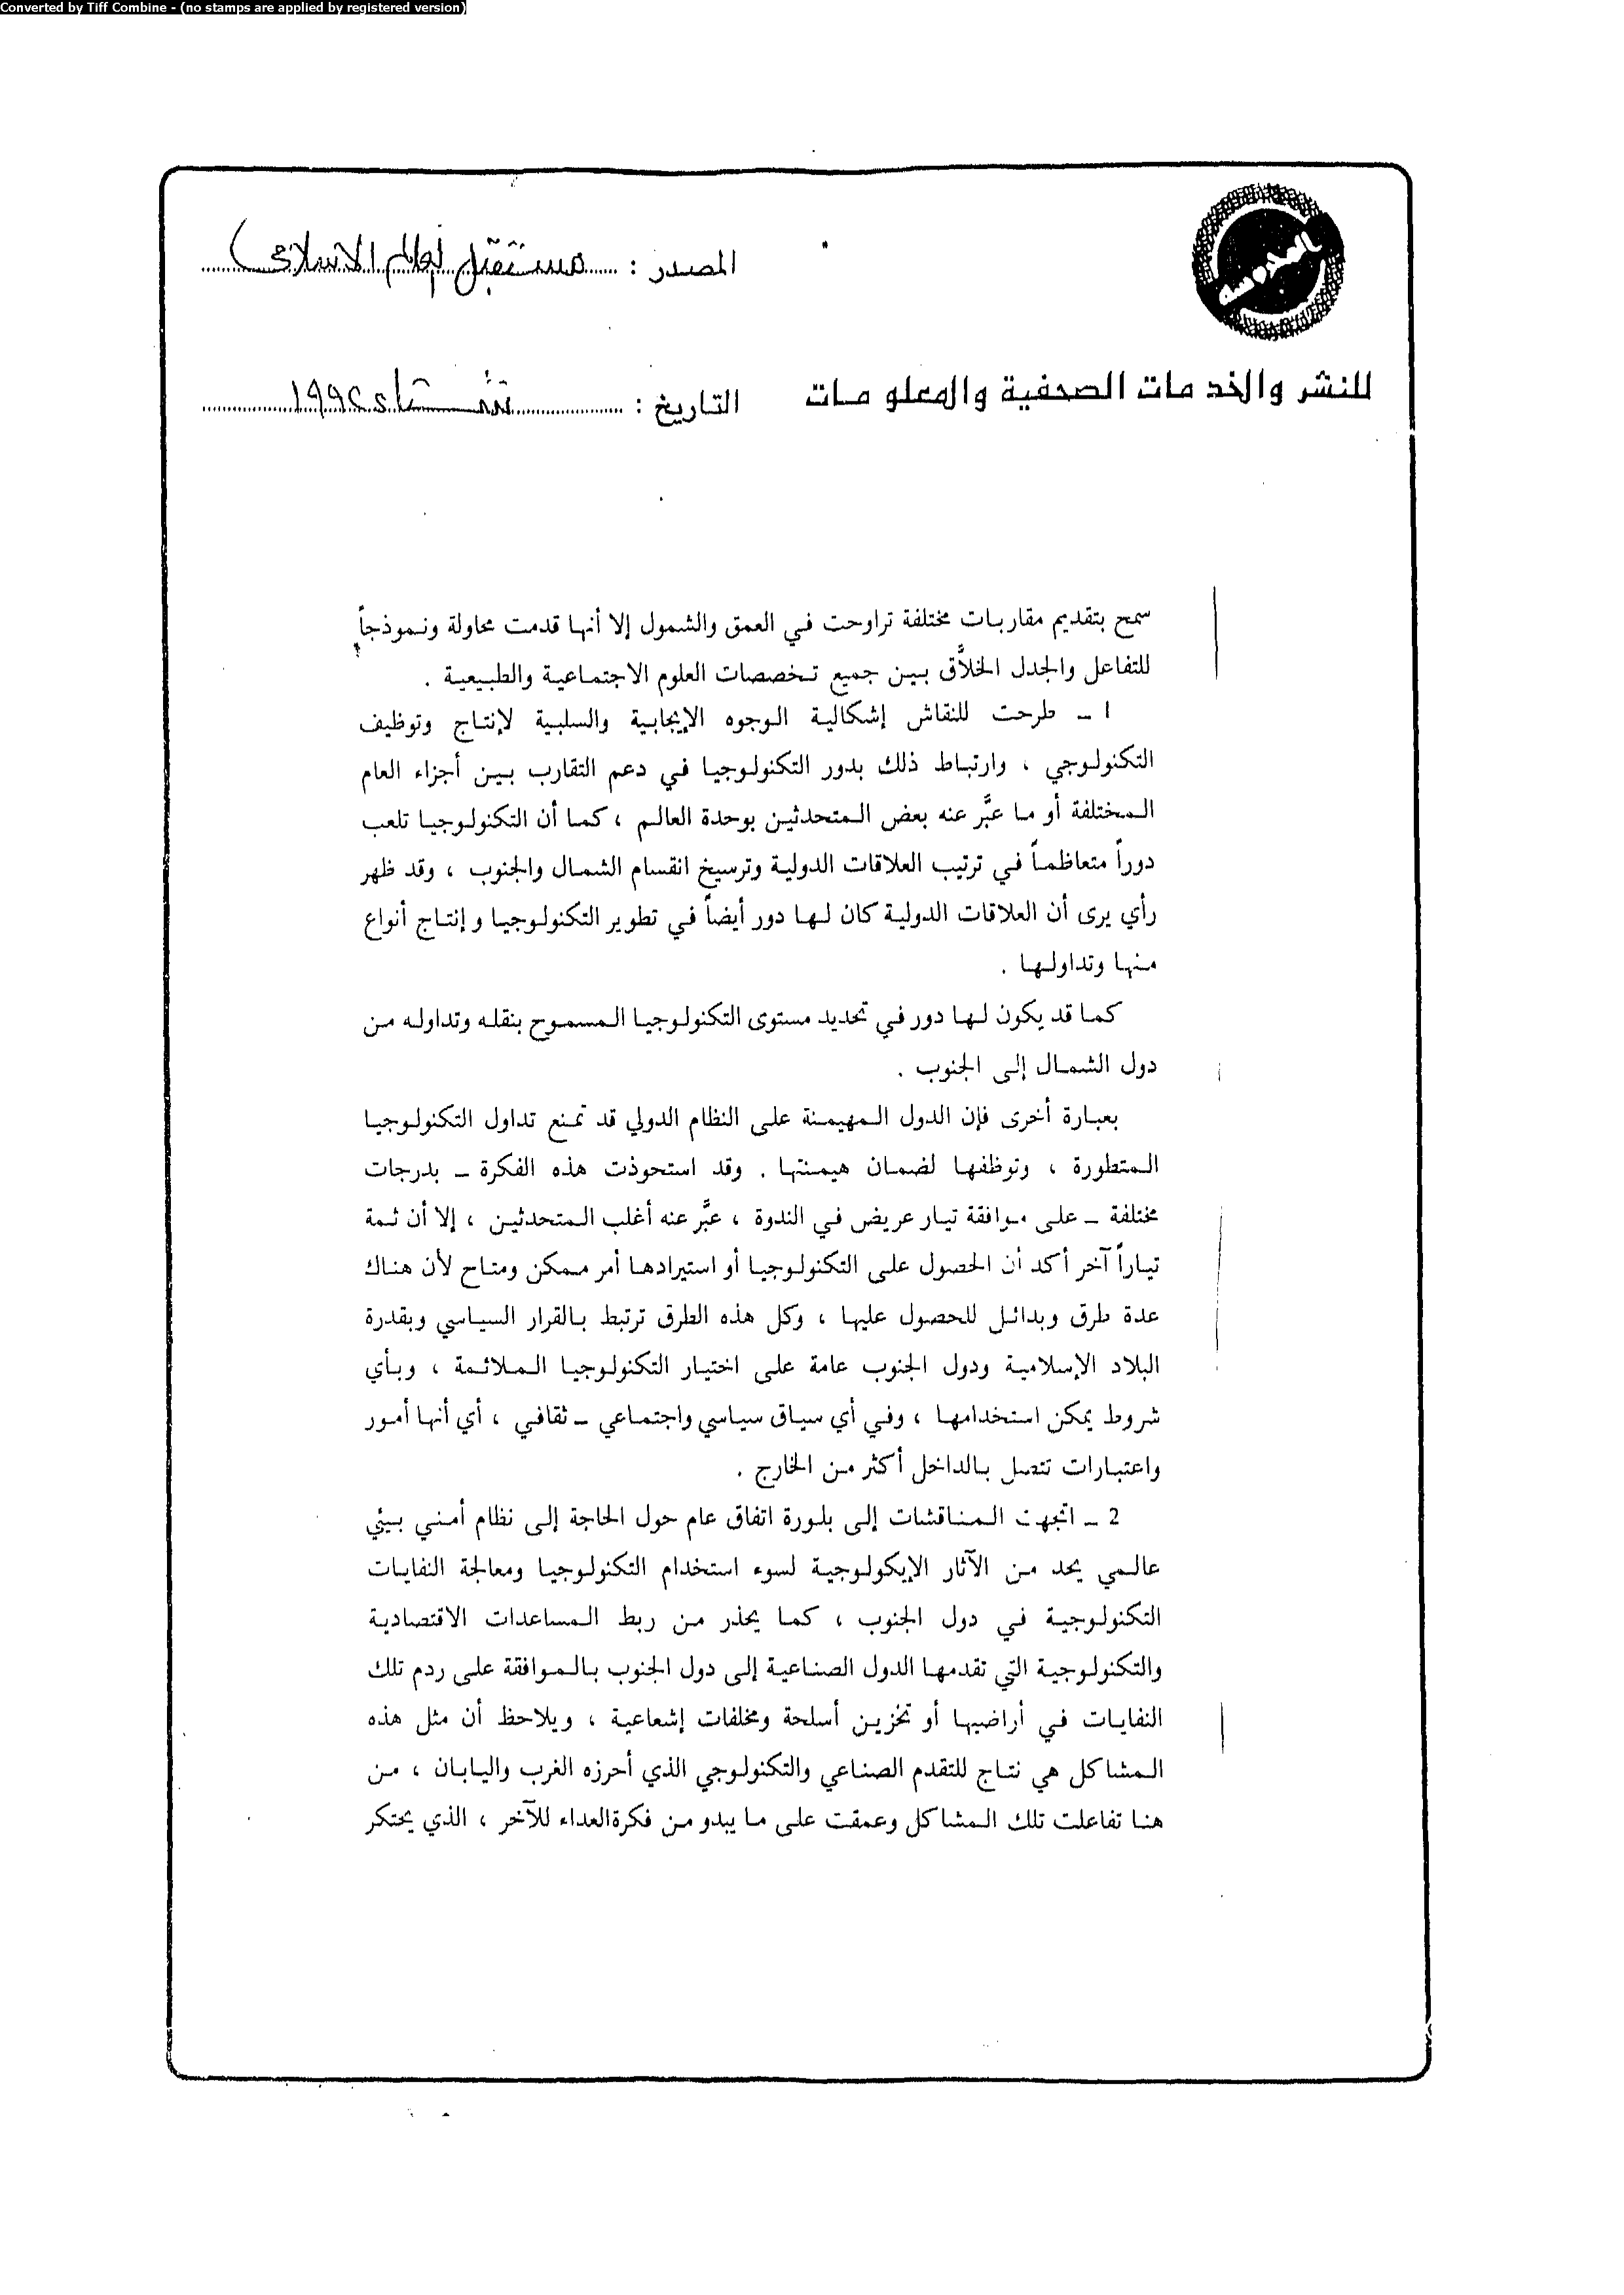 Converted by Tiff Combine - (no stamps are applied by registered version)
المصدر : مستقبل العالم الاسلامى
للنشر والخدمات الصحفية والمعلومات
التاريخ : شتاء ١٩٩٢
سمح بتقديم مقاربات مختلفة تراوحت في العمق والشمول إلا أنها قدمت محاولة ونموذجاً
للتفاعل والجدل الخلاَّق بين جميع تخصصات العلوم الاجتماعية والطبيعية .
1 ــ طرحت للنقاش إشكالية الوجوه الإيجابية والسلبية لإنتاج وتوظيف
التكنولوجي ، وارتباط ذلك بدور التكنولوجيا في دعم التقارب بين أجزاء العام
المختلفة أو ما عبَّر عنه بعض المتحدثين بوحدة العالم ، كما أن التكنولوجيا تلعب
دوراً متعاظماً في ترتيب العلاقات الدولية وترسيخ انقسام الشمال والجنوب ، وقد ظهر
رأي يرى أن العلاقات الدولية كان لها دور أيضاً في تطوير التكنولوجيا وإنتاج أنواع
منها وتداولها .
كما قد يكون لها دور في تحديد مستوى التكنولوجيا المسموح بنقله وتداوله من
دول الشمال إلى الجنوب .
بعبارة أخرى فإن الدول المهيمنة على النظام الدولي قد تمنع تداول التكنولوجيا
المتطورة ، وتوظفها لضمان هيمنتها . وقد استحوذت هذه الفكرة ــ بدرجات
مختلفة ــ على موافقة تيار عريض في الندوة ، عبَّر عنه أغلب المتحدثين ، إلا أن ثمة
تياراً آخر أكد أن الحصول على التكنولوجيا أو استيرادها أمر ممكن ومتاح لأن هناك
عدة طرق وبدائل للحصول عليها ، وكل هذه الطرق ترتبط بالقرار السياسي وبقدرة
البلاد الإسلامية ودول الجنوب عامة على اختيار التكنولوجيا الملائمة ، وبأي
شروط يمكن استخدامها ، وفي أي سياق سياسي واجتماعي ــ ثقافي ، أي أنها أمور
واعتبارات تتصل بالداخل أكثر من الخارج .
2 ــ اتجهت المناقشات إلى بلورة اتفاق عام حول الحاجة إلى نظام أمني بيئي
عالمي يحد من الآثار الإيكولوجية لسوء استخدام التكنولوجيا ومعالجة النفايات
التكنولوجية في دول الجنوب ، كما يحذر من ربط المساعدات الاقتصادية
والتكنولوجية التي تقدمها الدول الصناعية إلى دول الجنوب بالموافقة على ردم تلك
النفايات في أراضيها أو تخزين أسلحة ومخلفات إشعاعية ، ويلاحظ أن مثل هذه
المشاكل هي نتاج للتقدم الصناعي والتكنولوجي الذي أحرزه الغرب واليابان ، من
هنا تفاعلت تلك المشاكل وعمقت على ما يبدو من فكرة العداء للآخر ، الذي يحتكر